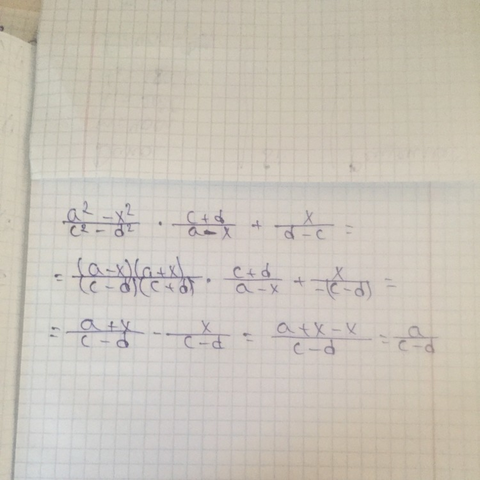 \frac{a^2 - x^2}{c^2 - d^2} \cdot \frac{c+d}{a-x} + \frac{x}{d-c} =
= \frac{(a-x)(a+x)}{(c-d)(c+d)} \cdot \frac{c+d}{a-x} + \frac{x}{-(c-d)} =
= \frac{a+x}{c-d} - \frac{x}{c-d} = \frac{a+x-x}{c-d} = \frac{a}{c-d}